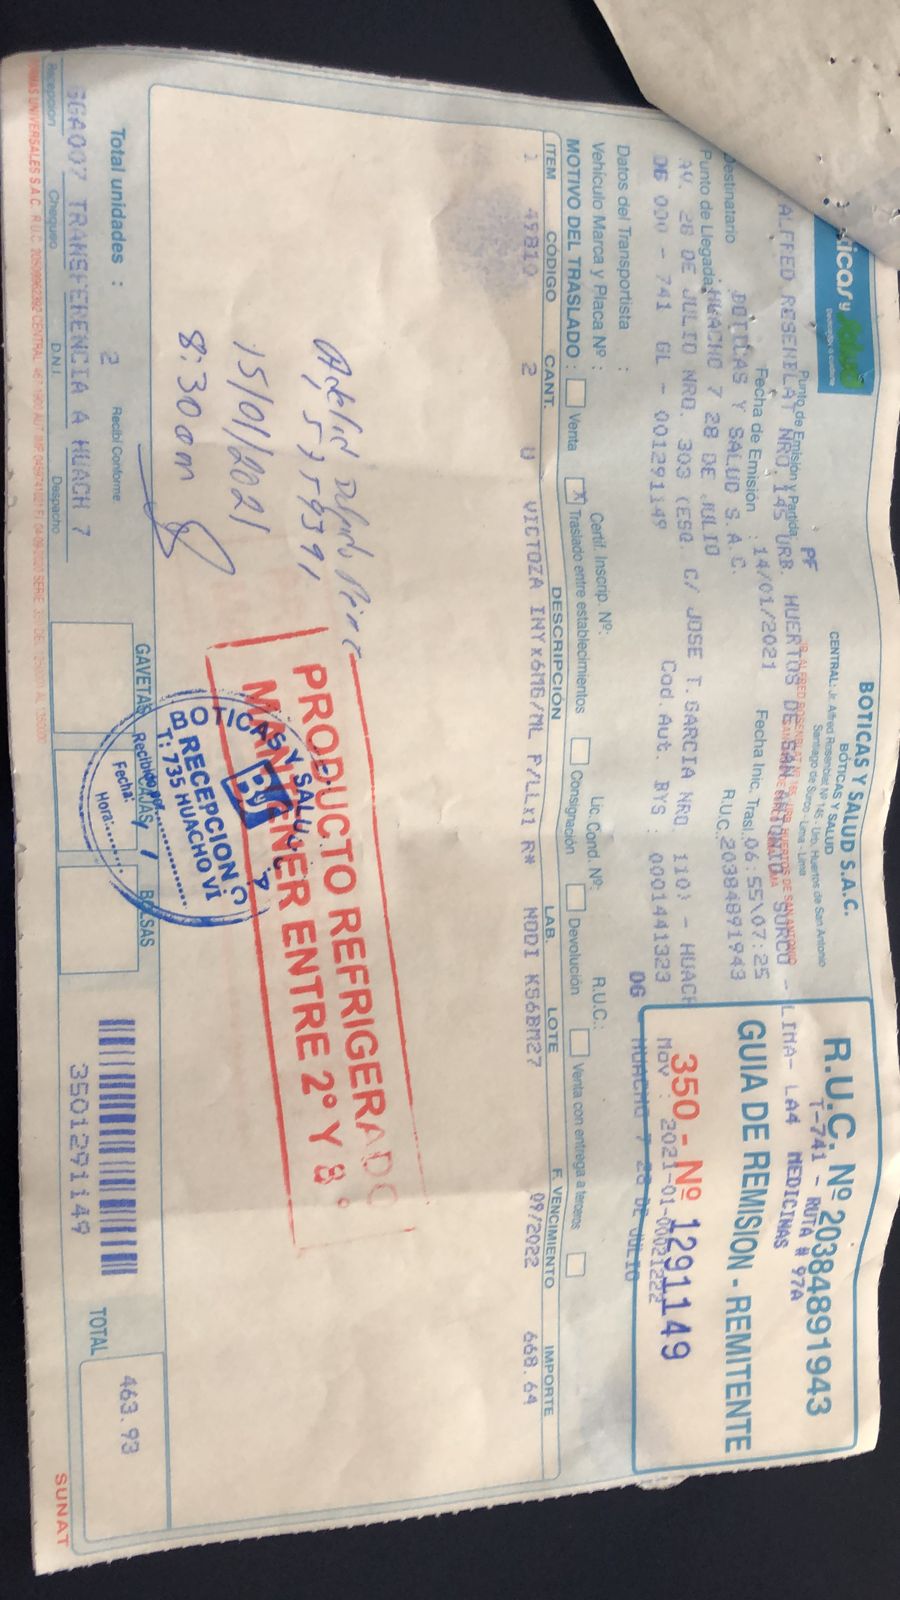 icas y Salud
Devolvemos a cuidarte
BOTICAS Y SALUD S.A.C.
BOTICAS Y SALUD
CENTRAL: Jr. Alfred Rosenblat Nº 145 - Urb. Huertos de San Antonio
Santiago de Surco - Lima - Lima
R.U.C. Nº 20384891943
T-741 - RUTA # 97A
GUIA DE REMISION - REMITENTE
350 - Nº 1291149
Mov : 2021-01-00021222
Punto de Emisión y Partida: PF
ALFRED ROSENBLAT NRO. 145 URB. HUERTOS DE SAN ANTONIO SURCO - LIMA- LA4 MEDICINAS
Fecha de Emisión : 14/01/2021 Fecha Inic. Trasl. 06:55\07:25
Destinatario BOTICAS Y SALUD S.A.C. R.U.C. 20384891943
Punto de Llegada: HUACHO 7 28 DE JULIO
AV. 28 DE JULIO NRO. 303 (ESQ. C/ JOSE T. GARCIA NRO 110) - HUACH
DG 000 - 741 GL - 001291149 Cod.Aut. BYS : 0001441323
DG HUACHO 7 28 DE JULIO
Datos del Transportista :
Vehículo Marca y Placa Nº : Certif. Inscrip. Nº: Lic. Cond. Nº: R.U.C.:
MOTIVO DEL TRASLADO : Venta X Traslado entre establecimientos Consignación Devolución Venta con entrega a terceros
ITEM CÓDIGO CANT. DESCRIPCIÓN LAB. LOTE F. VENCIMIENTO IMPORTE
1 49810 2 U VICTOZA INYx6MG/ML P/LLx1 R* NODI KS6BM27 09/2022 668.64
15/01/2021
8:30 am
PRODUCTO REFRIGERADO
MANTENER ENTRE 2° Y 8°
BOTICAS Y SALUD
RECEPCION
T: 735 HUACHO VI
Recibido por
Fecha:
Hora:
Total unidades : 2 Recibí Conforme
GAVETAS CAJAS BOLSAS
TRANSFERENCIA A HUACH 7
Recepción Chequeo D.N.I. Despacho
3501291149
TOTAL 463.93
SUNAT